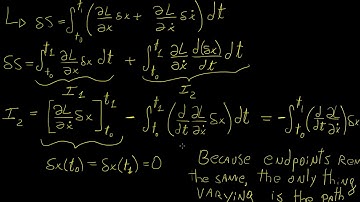 L↳ δS = ∫_{t₀}^{t₁} (∂L/∂x δx + ∂L/∂ẋ δẋ) dt
δS = ∫_{t₀}^{t₁} ∂L/∂x δx dt + ∫_{t₀}^{t₁} ∂L/∂ẋ d(δx)/dt dt
I₁ I₂
I₂ = [∂L/∂ẋ δx]_{t₀}^{t₁} - ∫_{t₀}^{t₁} (d/dt ∂L/∂ẋ δx) dt = -∫_{t₀}^{t₁} (d/dt ∂L/∂ẋ) δx
δx(t₀) = δx(t₁) = 0
Because endpoints
the same, the only thing
VARYING is the path